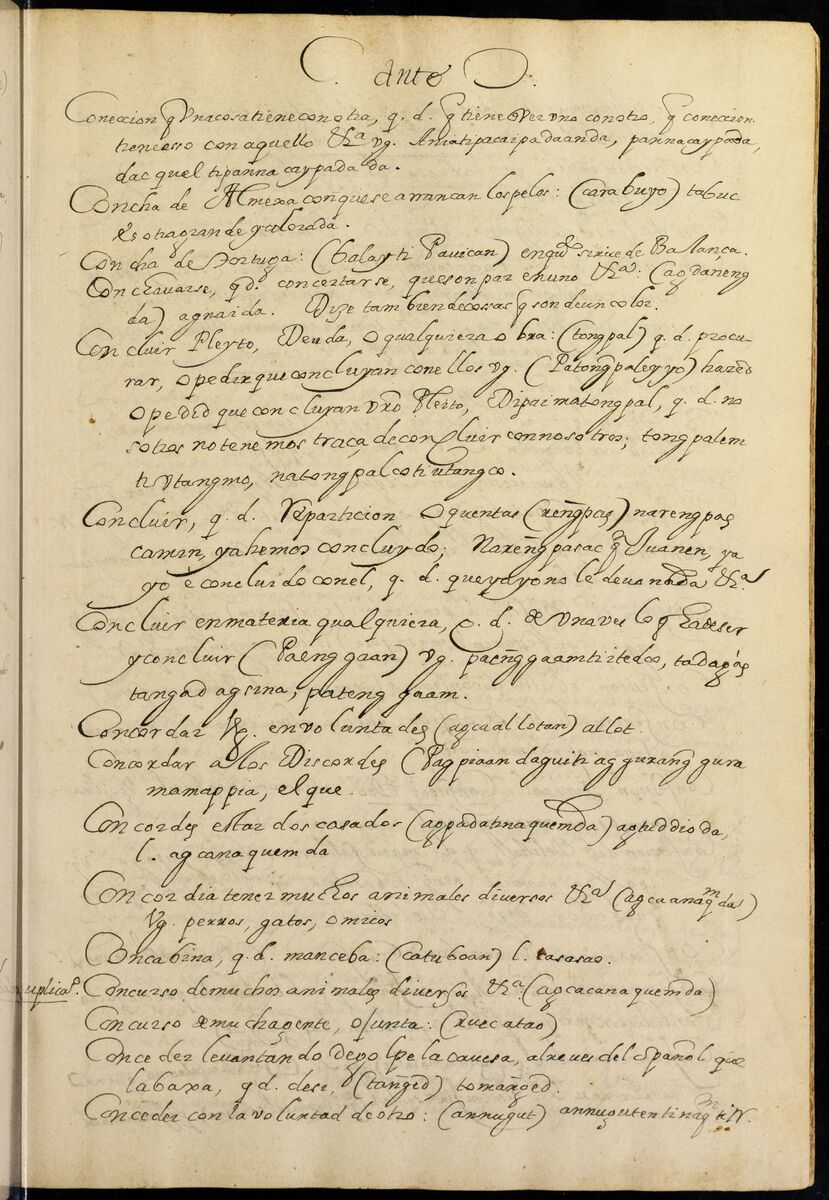 C. ante O.
Coneccion q̃ Vna cosa tiene con otra, q. d. q̃ tiene q̃ Ver vno con otro, q̃ coneccion
tiene esso con aquello &rª vg. Aniatipacaipadaanda, pannacaypada,
dac quel tipanna caypada da.
Concha de Almexa con que se arrancan los pelos: (carabuyo) tabuc
es otra grande y colorada.
Concha de Tortuga: (balayti Pauican) en q̃ sirve de Balança.
Conchavarse, qd. concertarse, que son par en uno &rª: (agdaneng
da) agnaida. Dize tambien de cossas q̃ son de un color.
Concluir Pleyto, Deuda, o qualquiera obra: (tongpal) q. d. procu-
rar, o pedir que concluyan con ellos vg. (Patong̃paleyyo) hazed
o pedid que concluyan vr̃o Pleito, Dipaimatongpal, q. d. no
sotros no tenemos traça de concluir con nosotros; tongpalem
ti vtangmo, natong̃palco ti utangco.
Concluir, q. d. Reparticion o quentas (reng̃pas) narengpas
camin, ya hemos concluydo; Nareng̃pasac q̃ Juanen, ya
yo e concluido con el, q. d. que ya yo no le devo nada &rª
Concluir en materia qualquiera, q. d. de vna ves lo q̃ ha de ser
y concluir (Paenggaan) vg. paeng̃gaam ti itedco, tadagas
tangad agsina, patenggaam.
Concordar Vg. en voluntades (agcaallotan) allot.
Concordar a los Discordes (Pagpiaan daguiti aggurang̃gura
mamappia, el que.
Concordes estar dos casados (agpadatinaquemda) agtiddioda,
l. agcanaquemda
Concordia tener muchos animales diversos &rª (agcuanaq̃mda)
Vg. perros, gatos, o micos
Concubina, q. d. manceba: (catuboan) l. casasao.
uplicaº. Concurso de muchos animales diversos &rª (agcacanaquemda)
Concurso de mucha gente, o junta: (ruecatao)
Conceder levantando de golpe la cavesa, al reves del Español que
la baxa, qd. desi, (tang̃ed) tomang̃ed.
Conceder con la voluntad de otro: (annugut) annugutentinaq̃m ti N.